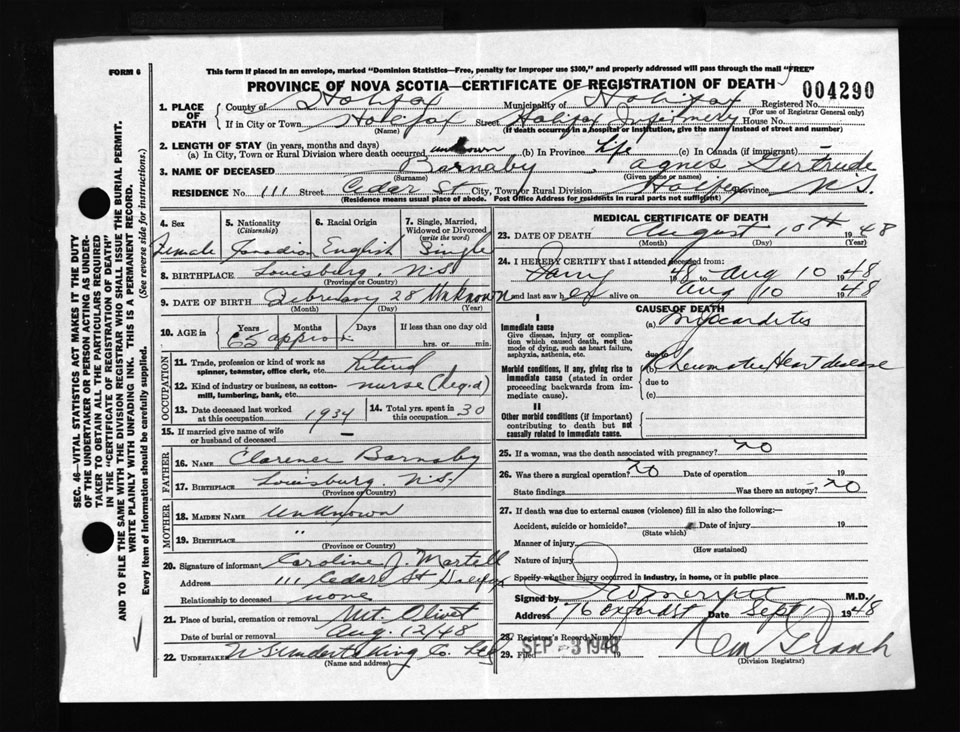 FORM 6
This form if placed in an envelope, marked "Dominion Statistics—Free, penalty for improper use $300," and properly addressed will pass through the mail "FREE"
PROVINCE OF NOVA SCOTIA—CERTIFICATE OF REGISTRATION OF DEATH
004290
1. PLACE OF DEATH
County of Halifax Municipality of Halifax Registered No.
(For use of Registrar General only)
If in City or Town Halifax Street Halifax Infirmary House No.
(Name) (If death occurred in a hospital or institution, give the name instead of street and number)
2. LENGTH OF STAY (in years, months and days)
(a) In City, Town or Rural Division where death occurred unknown (b) In Province Life (c) In Canada (if immigrant)
3. NAME OF DECEASED Barnaby Agnes Gertrude
(Surname) (Given name or names)
RESIDENCE No. 111 Street Cedar St City, Town or Rural Division Halifax Province N.S.
(Residence means usual place of abode. Post Office Address for residents in rural parts not sufficient)
4. Sex Female
5. Nationality (Citizenship) Canadian
6. Racial Origin English
7. Single, Married, Widowed or Divorced (write the word) Single
8. BIRTHPLACE Louisburg, N.S.
(Province or Country)
9. DATE OF BIRTH February 28 Unknown
(Month) (Day) (Year)
10. AGE in Years Months Days If less than one day old
65 approx hrs. or min.
OCCUPATION
11. Trade, profession or kind of work as spinner, teamster, office clerk, etc. Retired
12. Kind of industry or business, as cotton-mill, lumbering, bank, etc. nurse (Reg.d)
13. Date deceased last worked at this occupation 1934
14. Total yrs. spent in this occupation 30
15. If married give name of wife or husband of deceased —
FATHER
16. NAME Clarence Barnaby
17. BIRTHPLACE Louisburg, N.S.
(Province or Country)
MOTHER
18. MAIDEN NAME Unknown
19. BIRTHPLACE "
(Province or Country)
20. Signature of informant Caroline J. Martell
Address 111 Cedar St Halifax
Relationship to deceased none
21. Place of burial, cremation or removal Mt. Olivet
Date of burial or removal Aug. 12/48
22. UNDERTAKER N S Undertaking Co.
(Name and address)
MEDICAL CERTIFICATE OF DEATH
23. DATE OF DEATH August 10th 1948
(Month) (Day) (Year)
24. I HEREBY CERTIFY that I attended deceased from
48 to Aug 10 1948
and last saw her alive on Aug 10 1948
CAUSE OF DEATH
I
Immediate cause
Give disease, injury or complication which caused death, not the mode of dying, such as heart failure, asphyxia, asthenia, etc.
(a) Myocarditis
due to
Morbid conditions, if any, giving rise to immediate cause (stated in order proceeding backwards from immediate cause).
(b) Rheumatic Heart disease
due to
(c)
II
Other morbid conditions (if important) contributing to death but not causally related to immediate cause.
25. If a woman, was the death associated with pregnancy? no
26. Was there a surgical operation? no Date of operation 19
State findings Was there an autopsy? no
27. If death was due to external causes (violence) fill in also the following:—
Accident, suicide or homicide? Date of injury 19
(State which)
Manner of injury
(How sustained)
Nature of injury
Specify whether injury occurred in industry, in home, or in public place
Signed by M.D.
Address 176 Oxford St Date Sept 1 1948
28. Registrar's Record Number
29. Filed SEP -3 1948 19
(Division Registrar)
SEC. 46—VITAL STATISTICS ACT MAKES IT THE DUTY
OF THE UNDERTAKER OR PERSON ACTING AS UNDERTAKER
TO OBTAIN ALL THE PARTICULARS REQUIRED
IN THE "CERTIFICATE OF REGISTRATION OF DEATH"
AND TO FILE THE SAME WITH THE DIVISION REGISTRAR WHO SHALL ISSUE THE BURIAL PERMIT.
WRITE PLAINLY WITH UNFADING INK. THIS IS A PERMANENT RECORD.
Every item of information should be carefully supplied. (See reverse side for instructions.)